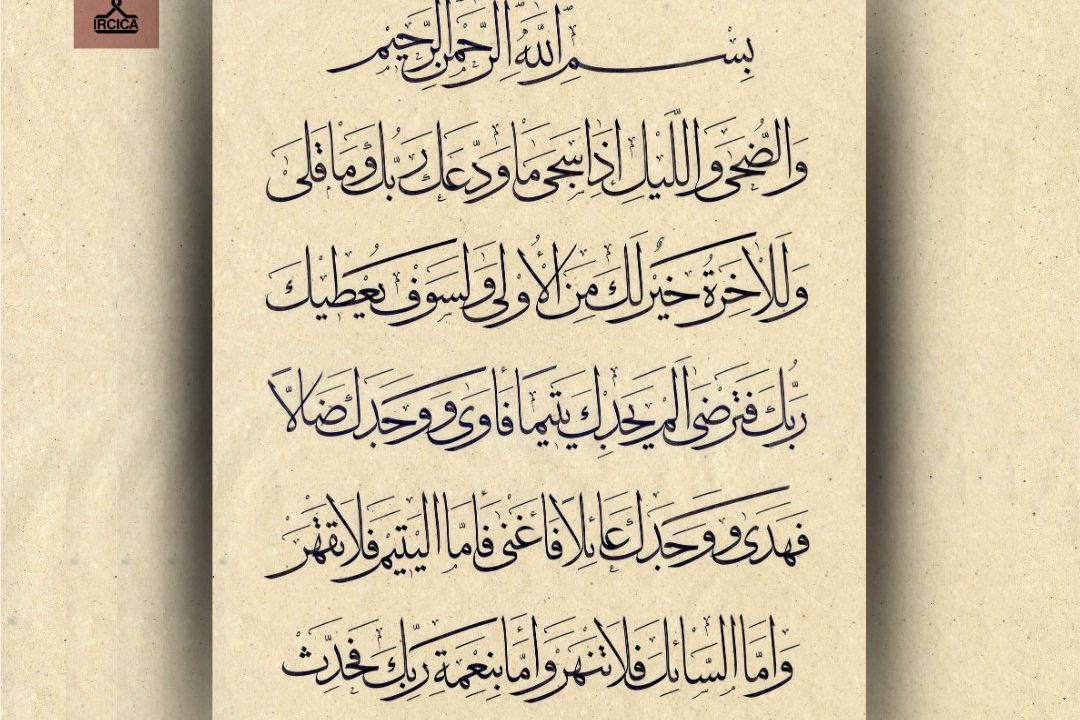 IRCICA
بِسْمِ اللّٰهِ الرَّحْمٰنِ الرَّحِيمِ
وَالضُّحَى وَاللَّيْلِ إِذَا سَجَى مَا وَدَّعَكَ رَبُّكَ وَمَا قَلَى
وَلَلْآخِرَةُ خَيْرٌ لَكَ مِنَ الْأُوْلَى وَلَسَوْفَ يُعْطِيْكَ
رَبُّكَ فَتَرْضَى أَلَمْ يَجِدْكَ يَتِيْمًا فَاٰوَى وَوَجَدَكَ ضَالًّا
فَهَدَى وَوَجَدَكَ عَائِلًا فَأَغْنَى فَأَمَّا الْيَتِيْمَ فَلَا تَقْهَرْ
وَأَمَّا السَّائِلَ فَلَا تَنْهَرْ وَأَمَّا بِنِعْمَةِ رَبِّكَ فَحَدِّثْ